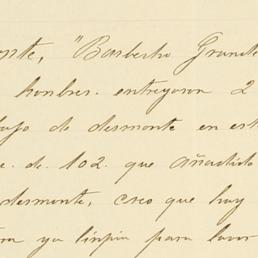 "Barbecho Grande
hombres. entregaron 2
de desmonte en est
e. de. 102. que añadido
desmonte, creo que hay
ya limpia para